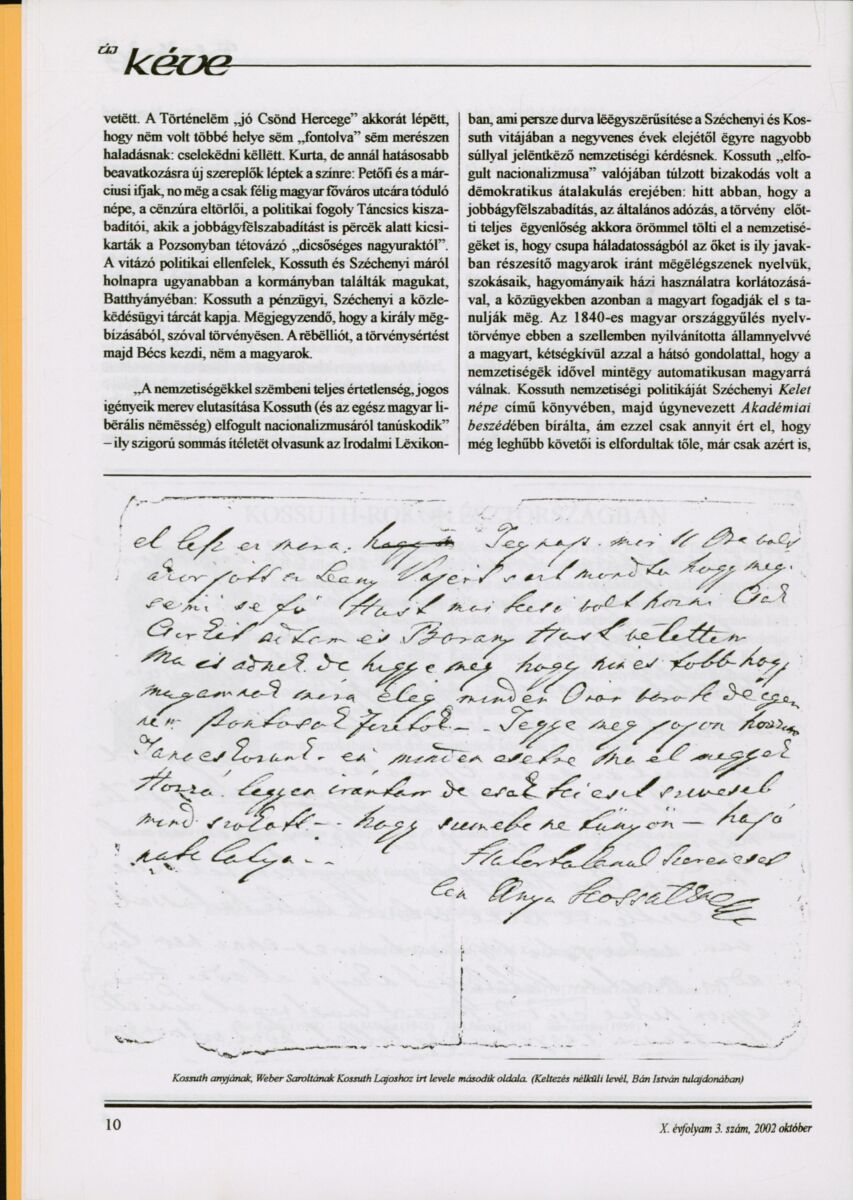 új kéve
vetëtt. A Történelëm „jó Csönd Hercege” akkorát lépëtt,
hogy nëm volt többé helye sëm „fontolva” sëm merészen
haladásnak: cselekëdni këllëtt. Kurta, de annál hatásosabb
beavatkozásra új szereplők léptek a színre: Petőfi és a már-
ciusi ifjak, no mëg a csak félig magyar főváros utcára tóduló
népe, a cënzúra eltörlői, a politikai fogoly Táncsics kisza-
badítói, akik a jobbágyfëlszabadítást is përcëk alatt kicsi-
karták a Pozsonyban tétovázó „dicsőséges nagyuraktól”.
A vitázó politikai ellenfelek, Kossuth és Széchenyi máról
holnapra ugyanabban a kormányban találták magukat,
Batthyányéban: Kossuth a pénzügyi, Széchenyi a közle-
këdésügyi tárcát kapja. Mëgjegyzendő, hogy a király mëg-
bízásából, szóval törvényësen. A rëbëlliót, a törvénysértést
majd Bécs kezdi, nëm a magyarok.
„A nemzetiségëkkel szëmbeni teljes értetlenség, jogos
igényeik merev elutasítása Kossuth (és az egész magyar li-
bërális nëmësség) elfogult nacionalizmusáról tanúskodik”
– ily szigorú sommás ítéletët olvasunk az Irodalmi Lëxikon-
ban, ami persze durva lëëgyszërűsítése a Széchenyi és Kos-
suth vitájában a negyvenes évek elejétől ëgyre nagyobb
súllyal jelëntkëző nemzetiségi kérdésnek. Kossuth „elfo-
gult nacionalizmusa” valójában túlzott bizakodás volt a
dëmokratikus átalakulás erejében: hitt abban, hogy a
jobbágyfëlszabadítás, az általános adózás, a törvény előt-
ti teljes ëgyenlőség akkora örömmel tölti el a nemzetisé-
gëket is, hogy csupa háladatosságból az őket is ily javak-
ban részesítő magyarok iránt mëgëlégszenek nyelvük,
szokásaik, hagyományaik házi használatra korlátozásá-
val, a közügyekben azonban a magyart fogadják el s ta-
nulják mëg. Az 1840-es magyar országgyűlés nyelv-
törvénye ebben a szellemben nyilvánította államnyelvvé
a magyart, kétségkívül azzal a hátsó gondolattal, hogy a
nemzetiségëk idővel mintëgy automatikusan magyarrá
válnak. Kossuth nemzetiségi politikáját Széchenyi Kelet
népe című könyvében, majd úgynevezett Akadémiai
beszédében bírálta, ám ezzel csak annyit ért el, hogy
még leghűbb követői is elfordultak tőle, már csak azért is,
Tegnap már 11 Ora volt
akor jött a Leany
semi se fő Hust mar kesö volt hozni Csak
adtam és Barany Hust
Ma is adnek de higgye meg hogy nincs több hogy
magamnak elég minden
nem
én minden esetre Ma el megyek
Hozzá legyen irántam
mind hogy szemebe ne tünyön – hajó
Anya Kossuth
Kossuth anyjának, Weber Saroltának Kossuth Lajoshoz írt levele második oldala. (Keltezés nélküli levél, Bán István tulajdonában)
10
X. évfolyam 3. szám, 2002 október